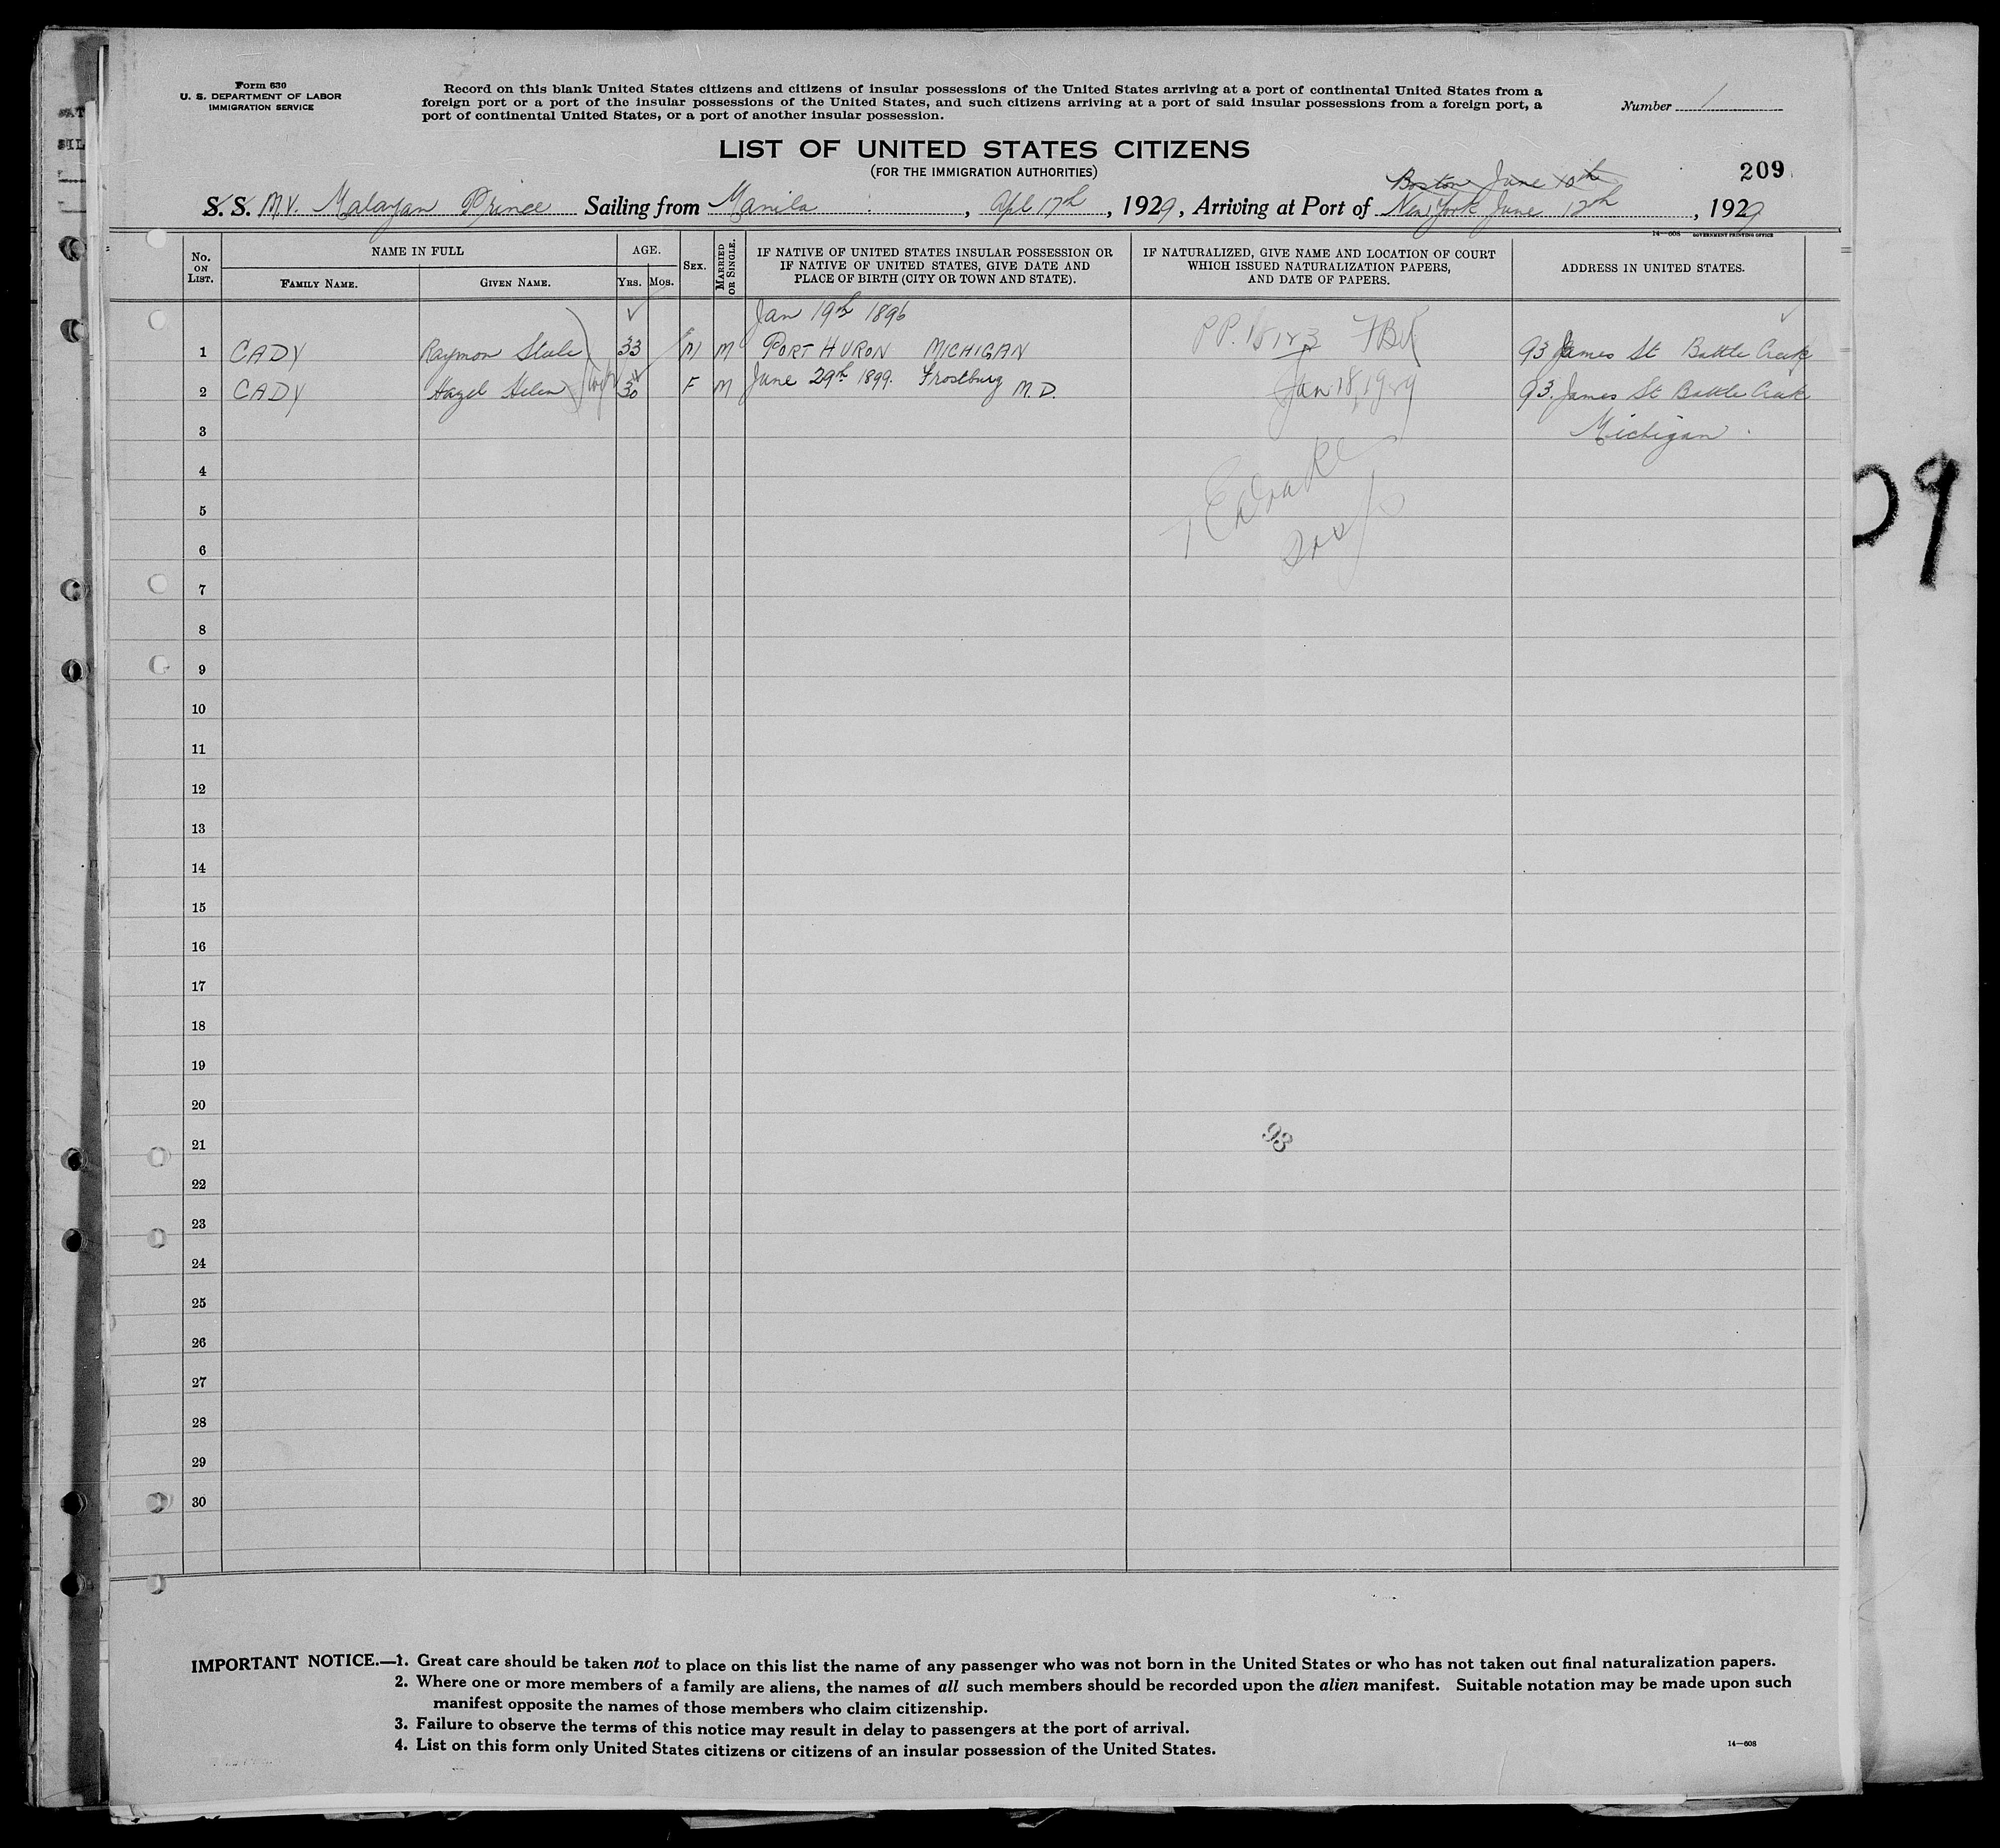 Form 630
U. S. DEPARTMENT OF LABOR
IMMIGRATION SERVICE
Record on this blank United States citizens and citizens of insular possessions of the United States arriving at a port of continental United States from a
foreign port or a port of the insular possessions of the United States, and such citizens arriving at a port of said insular possessions from a foreign port, a
port of continental United States, or a port of another insular possession.
Number 1
LIST OF UNITED STATES CITIZENS
(FOR THE IMMIGRATION AUTHORITIES)
209
Boston June 10th
S. S. M.V. Malayan Prince Sailing from Manila, Apl 17th, 1929, Arriving at Port of New York June 12th, 1929
14—608 GOVERNMENT PRINTING OFFICE
No. ON LIST.
NAME IN FULL
FAMILY NAME.
GIVEN NAME.
AGE.
YRS. MOS.
SEX.
MARRIED OR SINGLE.
IF NATIVE OF UNITED STATES INSULAR POSSESSION OR
IF NATIVE OF UNITED STATES, GIVE DATE AND
PLACE OF BIRTH (CITY OR TOWN AND STATE).
IF NATURALIZED, GIVE NAME AND LOCATION OF COURT
WHICH ISSUED NATURALIZATION PAPERS,
AND DATE OF PAPERS.
ADDRESS IN UNITED STATES.
Jan 19th 1896
1 CADY Raymon Stule 33 M M PORT HURON MICHIGAN P.P. 93 James St Battle Creek
2 CADY Hazel Helen 30 F M June 29th 1899. Frostburg M.D. Jan 18, 1929 93. James St Battle Creek
3 Michigan
4
5
6
7
8
9
10
11
12
13
14
15
16
17
18
19
20
21
93
22
23
24
25
26
27
28
29
30
09
IMPORTANT NOTICE.—1. Great care should be taken not to place on this list the name of any passenger who was not born in the United States or who has not taken out final naturalization papers.
2. Where one or more members of a family are aliens, the names of all such members should be recorded upon the alien manifest. Suitable notation may be made upon such
manifest opposite the names of those members who claim citizenship.
3. Failure to observe the terms of this notice may result in delay to passengers at the port of arrival.
4. List on this form only United States citizens or citizens of an insular possession of the United States.
14—608